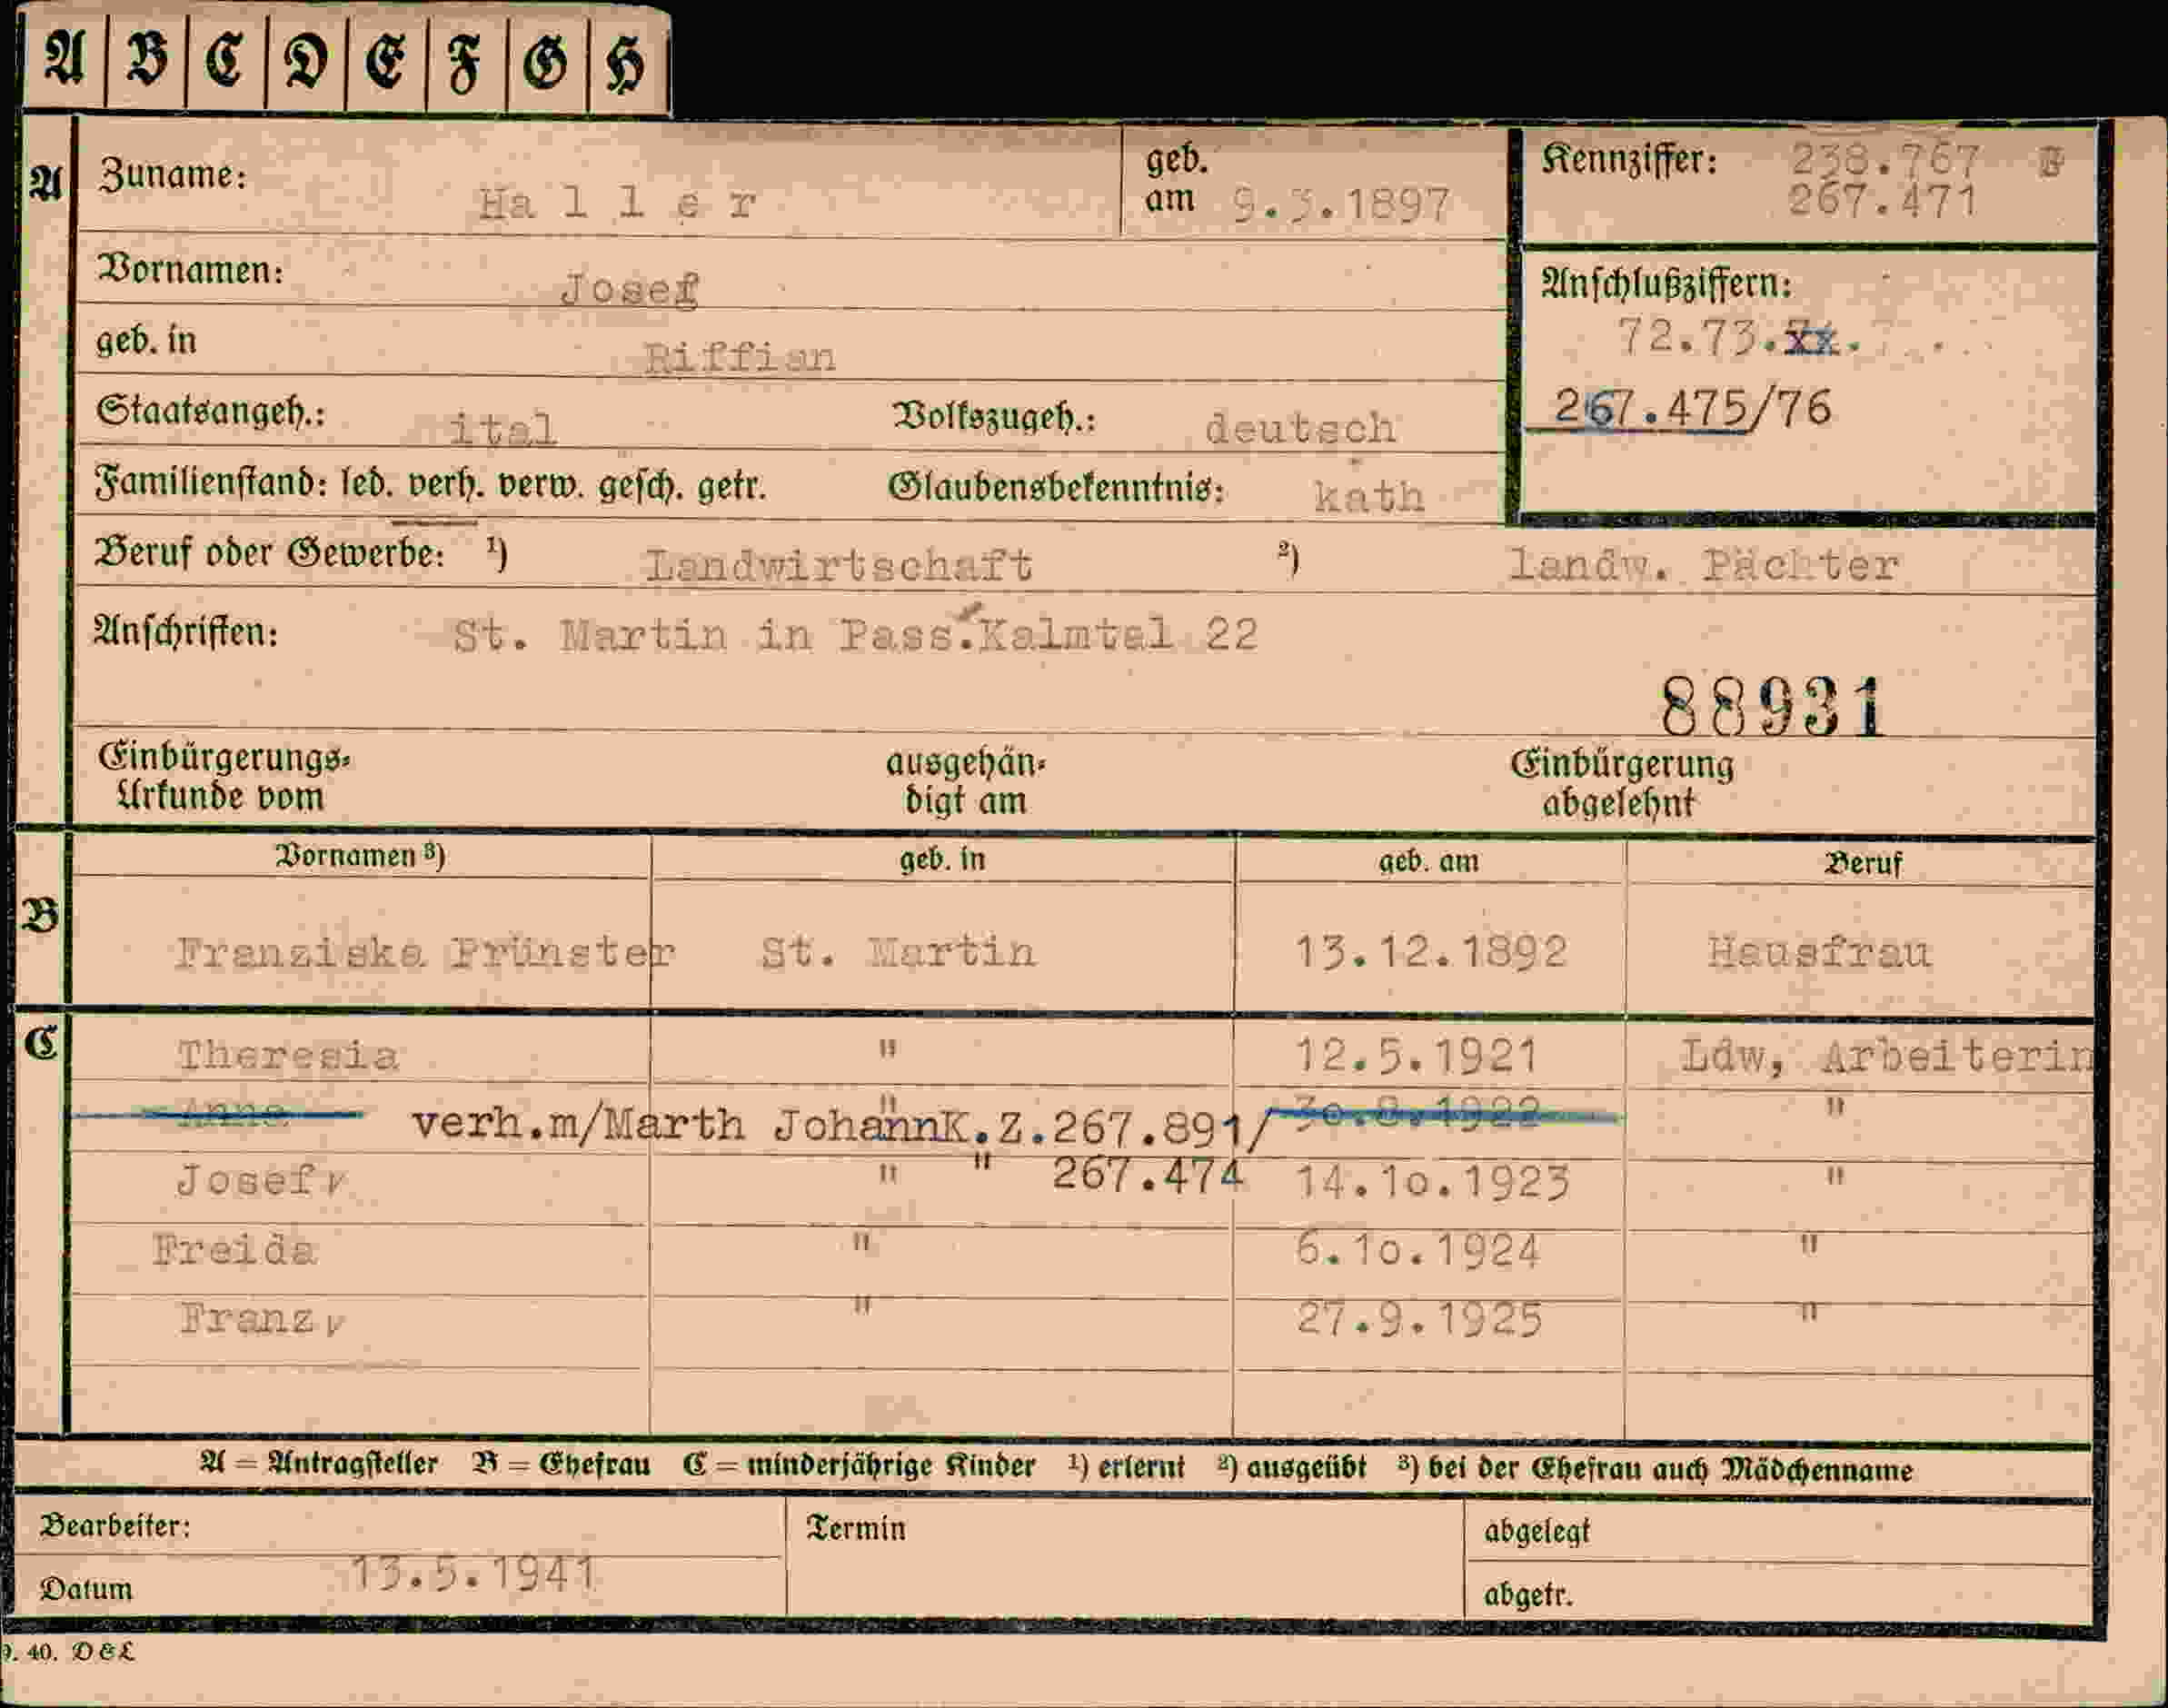 A B C D E F G H
A Zuname: Haller geb. am 9.3.1897 Kennziffer: 238.767 B
267.471
Vornamen: Josef Anschlußziffern:
geb. in Riffian 72.73.
Staatsangeh.: ital Volkszugeh.: deutsch 267.475/76
Familienstand: led. verh. verw. gesch. getr. Glaubensbekenntnis: kath
Beruf oder Gewerbe: ¹) Landwirtschaft ²) landw. Pächter
Anschriften: St. Martin in Pass.Kalmtal 22
88931
Einbürgerungs- ausgehän- Einbürgerung
Urkunde vom digt am abgelehnt
Vornamen ³) geb. in geb. am Beruf
B Franziska Prünster St. Martin 13.12.1892 Hausfrau
C Theresia " 12.5.1921 Ldw, Arbeiterin
Anna " verh.m/Marth JohannK.Z.267.891/ 30.8.1922 "
Josef v " " 267.474 14.10.1923 "
Freida " 6.10.1924 "
Franz v " 27.9.1925 "
A = Antragsteller B = Ehefrau C = minderjährige Kinder ¹) erlernt ²) ausgeübt ³) bei der Ehefrau auch Mädchenname
Bearbeiter: Termin abgelegt
Datum 13.5.1941 abgetr.
9. 40. D&L